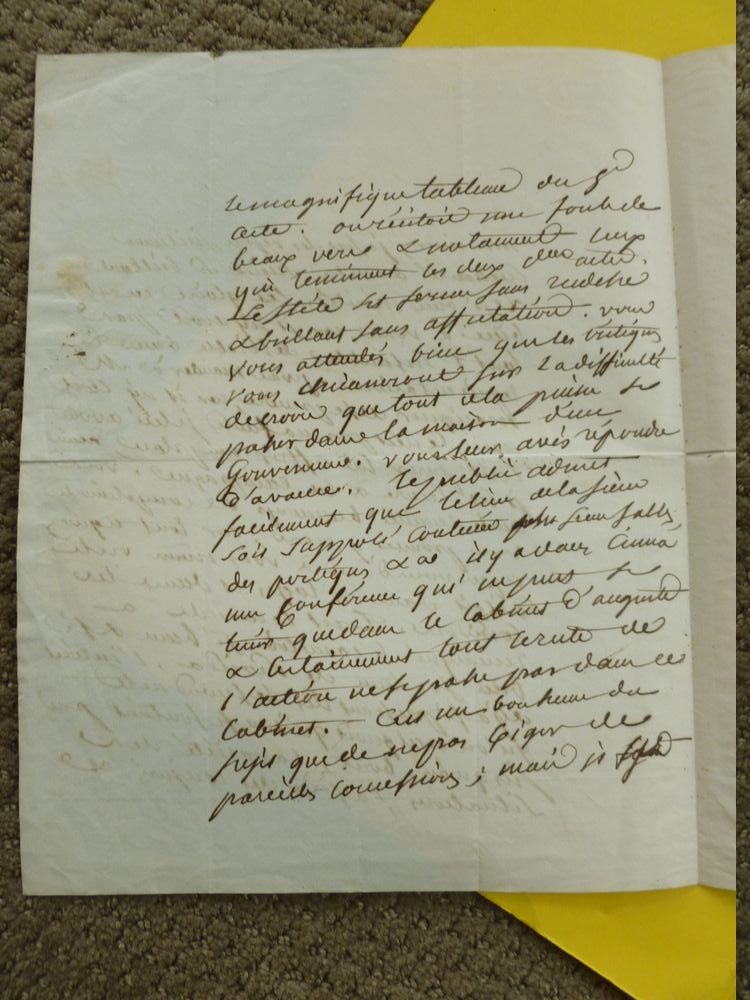 le magnifique tableau du 5e
acte. on récitoit une foule de
beaux vers & notamment ceux
qui terminent les deux actes.
Le stile est ferme sans rudesse
& brillant sans affectation. vous
vous attendés bien que les critiques
vous chicaneront sur la difficulté
de croire que tout cela puisse se
passer dans la maison d'un
Gouverneur. vous leur avés répondu
d'avance. le public admet
facilement que le lieu de la scène
soit supposé contenir des salles
des portiques &a il y a dans Cinna
une Conférence qui ne peut se
tenir que dans le Cabinet d'auguste
& certainement tout le reste de
l'action ne se passe pas dans ce
Cabinet. C'est un bonheur du
sujet que de ne pas Exiger de
pareilles concessions; mais je